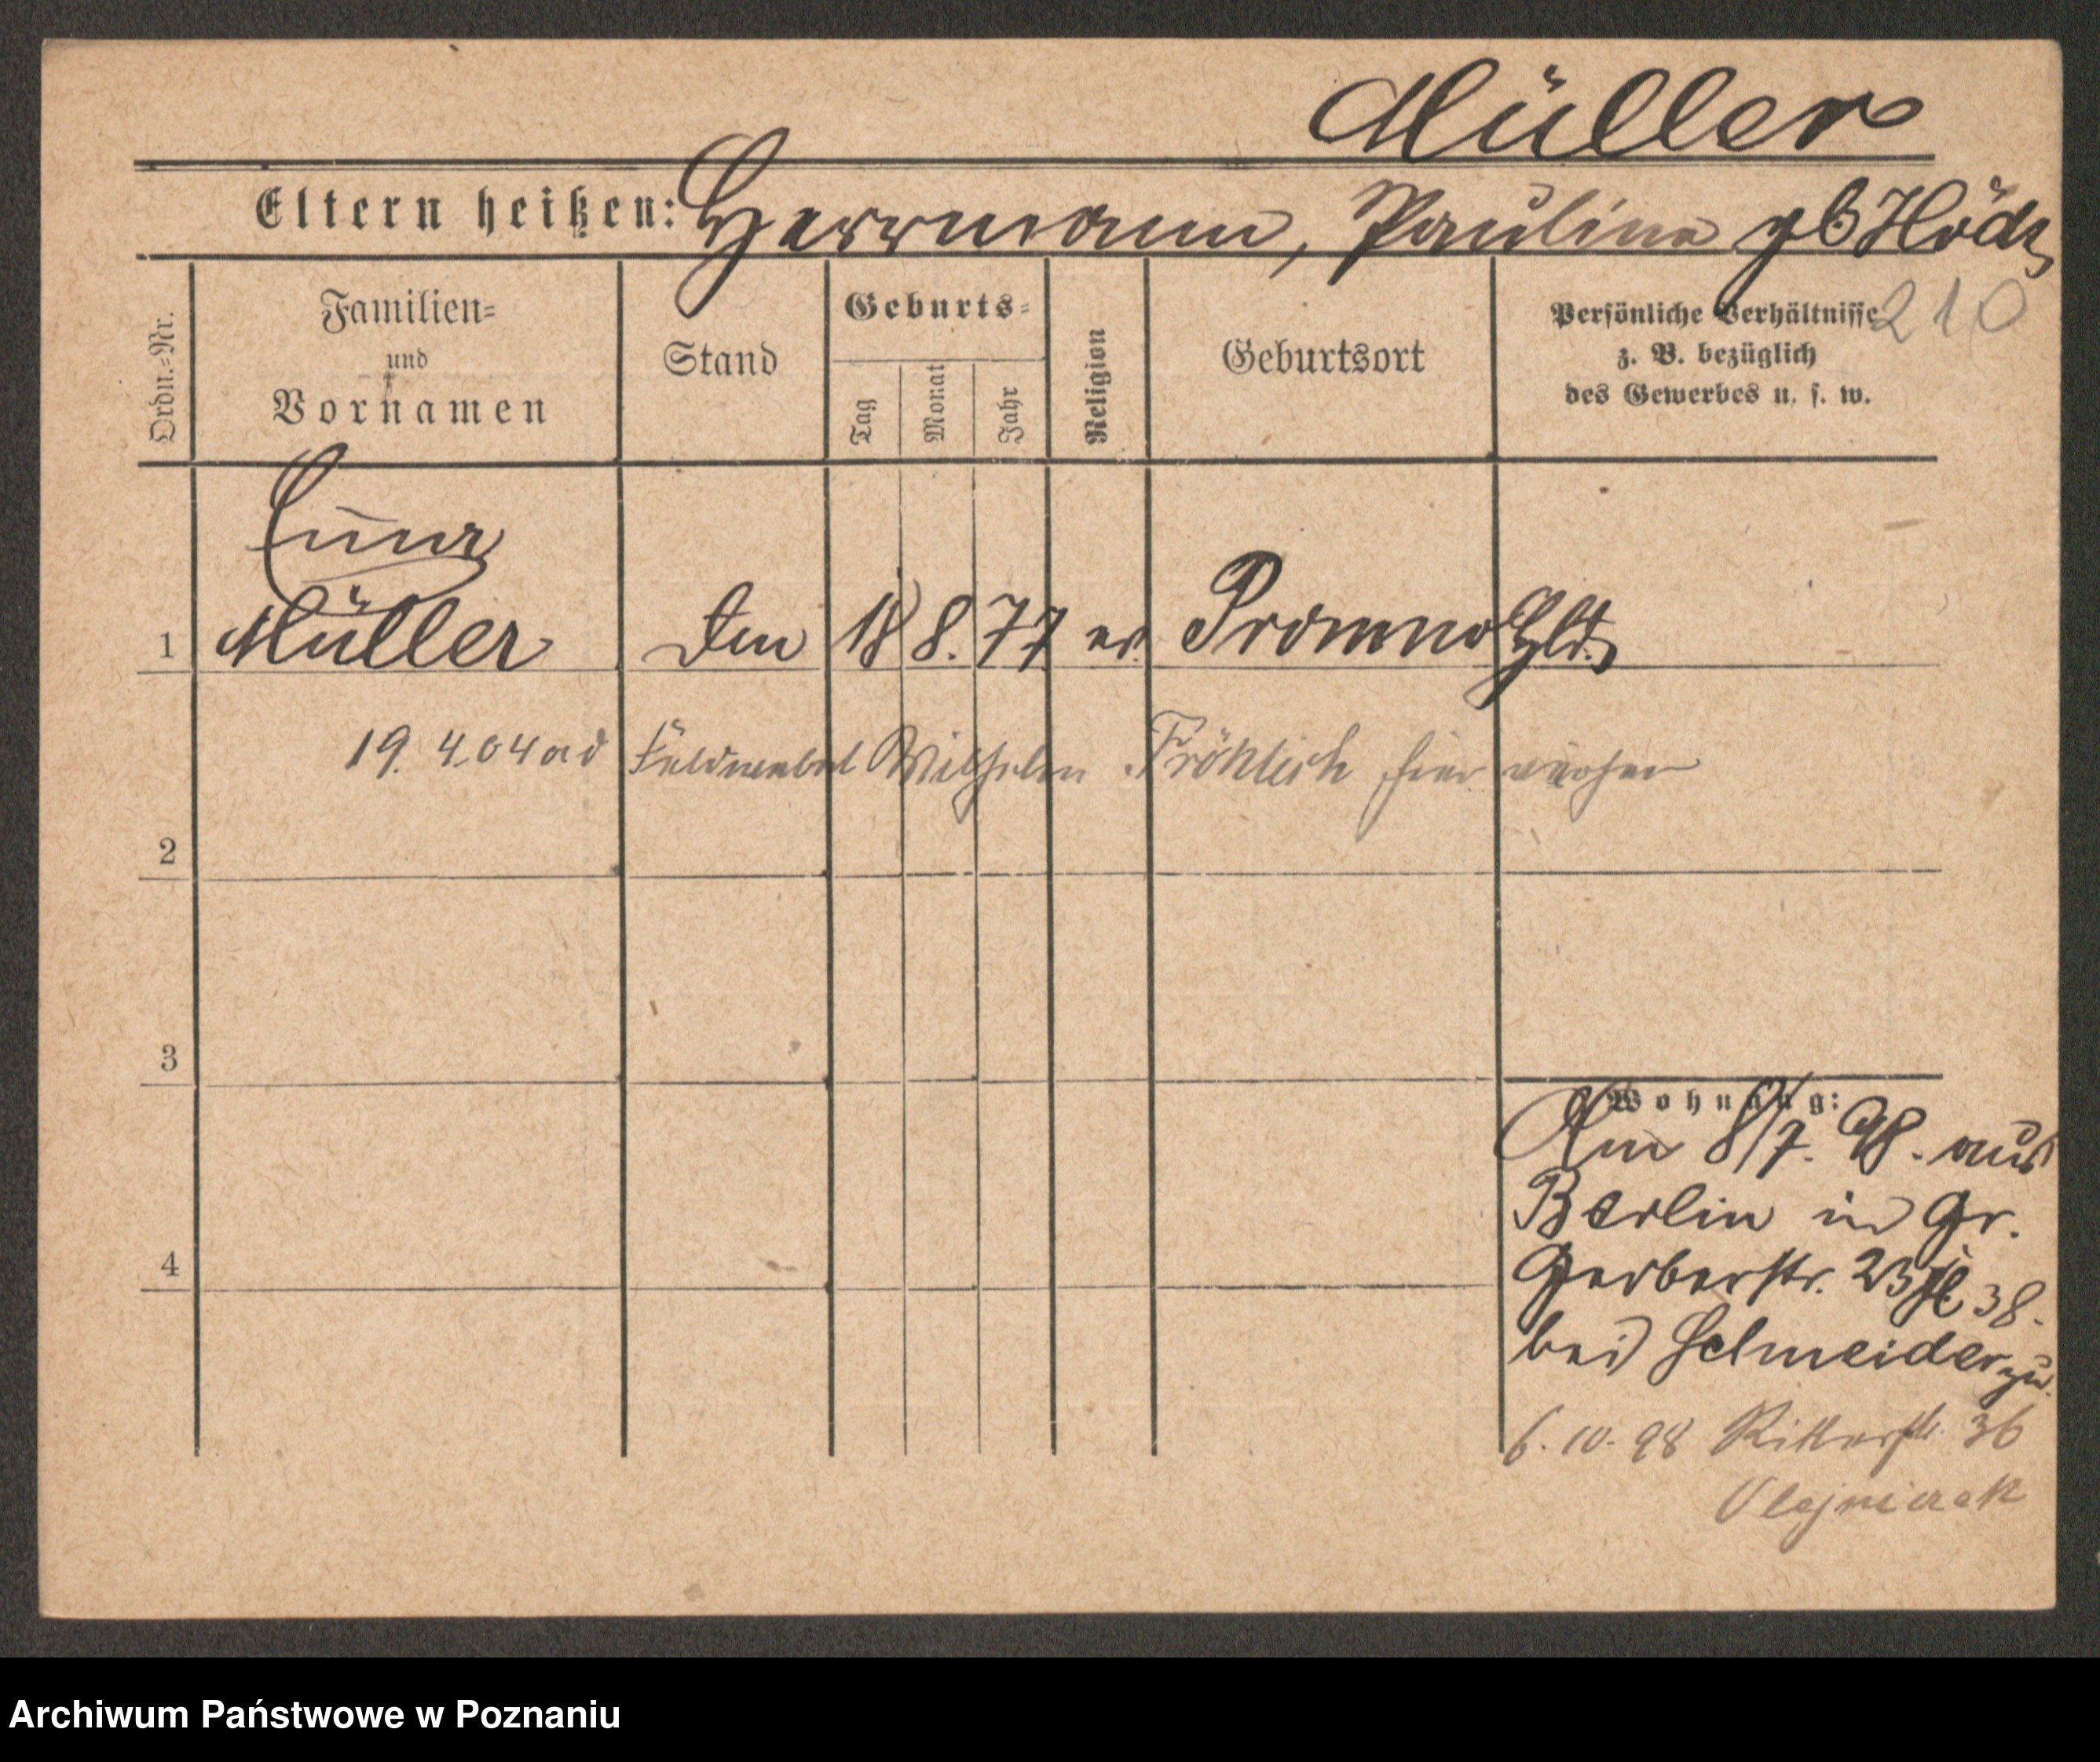 Müller
Eltern heißen: Herrmann, Pauline gb
210
Ordn.=Nr.
Familien=
und
Vornamen
Stand
Geburts=
Tag
Monat
Jahr
Religion
Geburtsort
Persönliche Verhältnisse
z. B. bezüglich
des Gewerbes u. s. w.
1 Müller 18 8. 77 ev. Promno
19. 4. 04 Wilhelm Fröhlich hier
2
3
4
Wohnung:
Am 8/7. 98. aus
Berlin in Gr.
Gerberstr. 23 38.
bei Schneider zu.
6. 10. 98 Ritterstr. 36